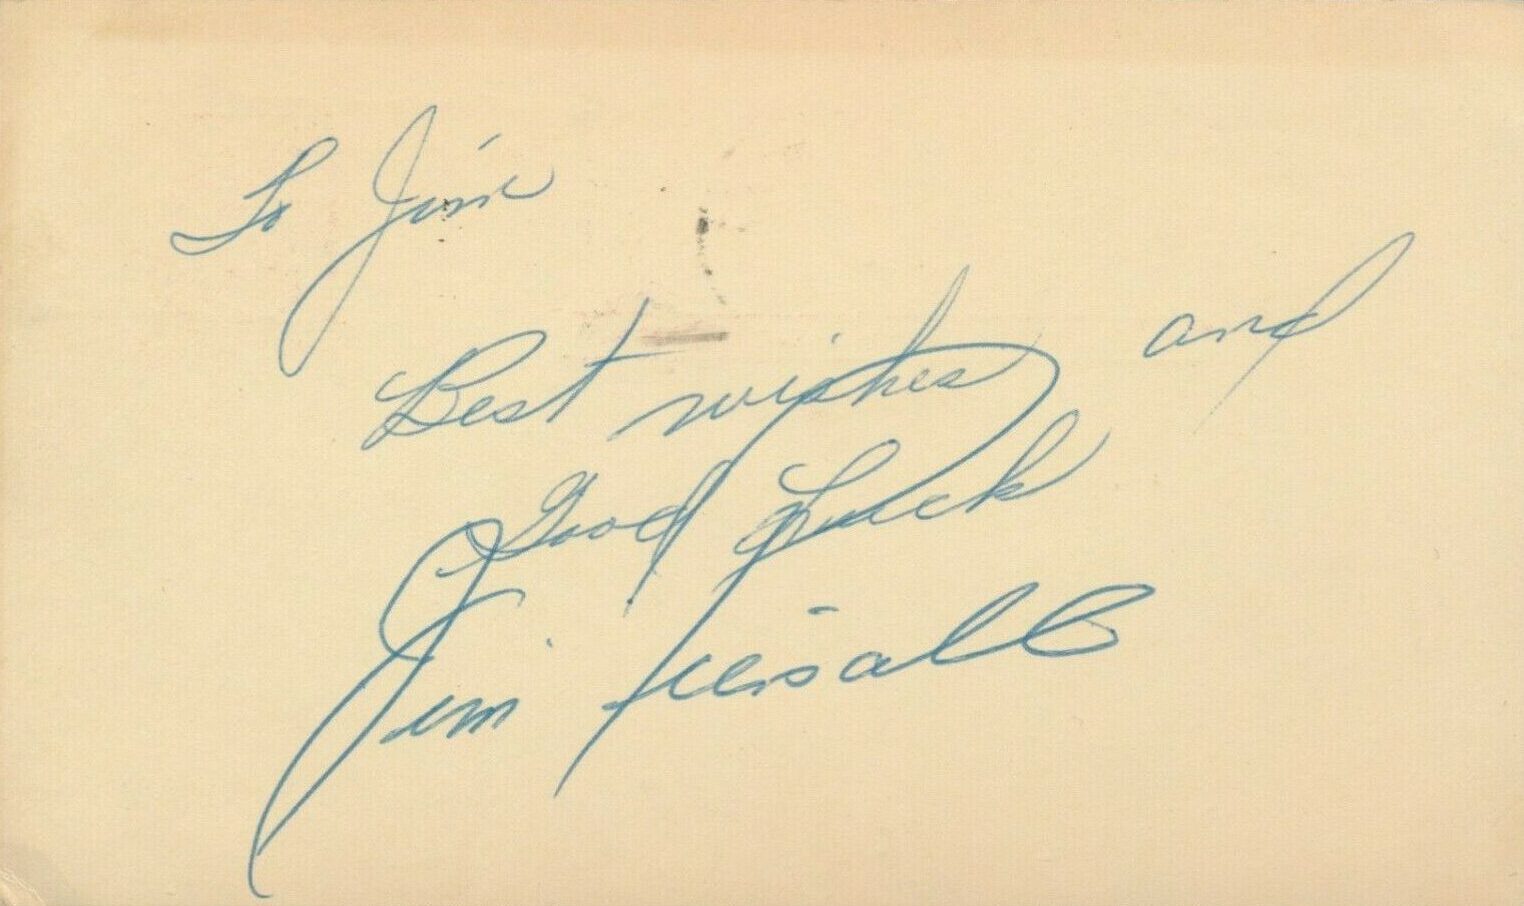 To Jim
Best wishes and
Good Luck
Jim Piersall